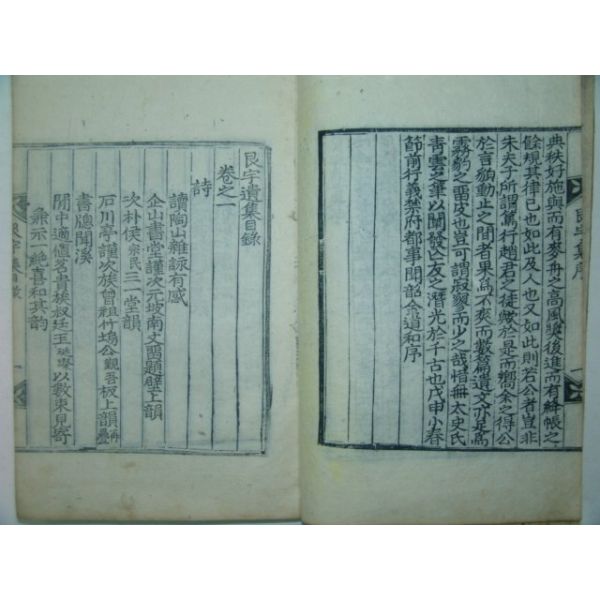 典秩好施與而有麥舟之高風奬後進而有絳帳之
餘規其律己也如此及人也又如此則若公者豈非
朱夫子所謂篤行趙君之徒歟於是而嚮余之得公
於言貌動止之間者果爲不爽而數篇遺文亦足爲
霧豹之留皮也豈可謂寂寥而少之哉惜無太史氏
靑雲之筆以闡發亡友之潛光於千古也戊申小春
節前行義禁府都事聞韶金道和序
艮宇遺集目錄
卷之一
詩
讀陶山雜詠有感
企山書堂謹次元坡南丈題壁上韻
次朴侯三一堂韻
石川亭謹次族曾祖竹塢公觀吾板上韻
書牕聞溪
閒中適懷名貴族叔廷玉以數束見寄
兼示一絶喜和其韵